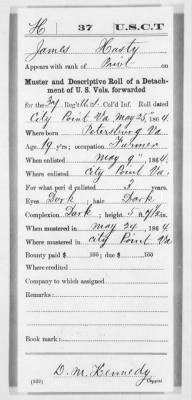 H 37 U.S.C.T
James Hasty
Appears with rank of Privt on
Muster and Descriptive Roll of a Detach-
ment of U. S. Vols. forwarded
for the 37 Reg't U.S. Col'd Inf. Roll dated
City Point Va May 25", 1864
Where born Petersburg Va
Age 19 y'rs; occupation Farmer
When enlisted May 9", 1864
Where enlisted City Point Va
For what period enlisted 3 years.
Eyes Dark; hair Dark
Complexion Dark; height 5 ft. in.
When mustered in May 24, 1864
Where mustered in City Point Va
Bounty paid $ 100; due $ 100
Where credited
Company to which assigned
Remarks:
Book mark:
D. M. Kennedy
(339) Copyist